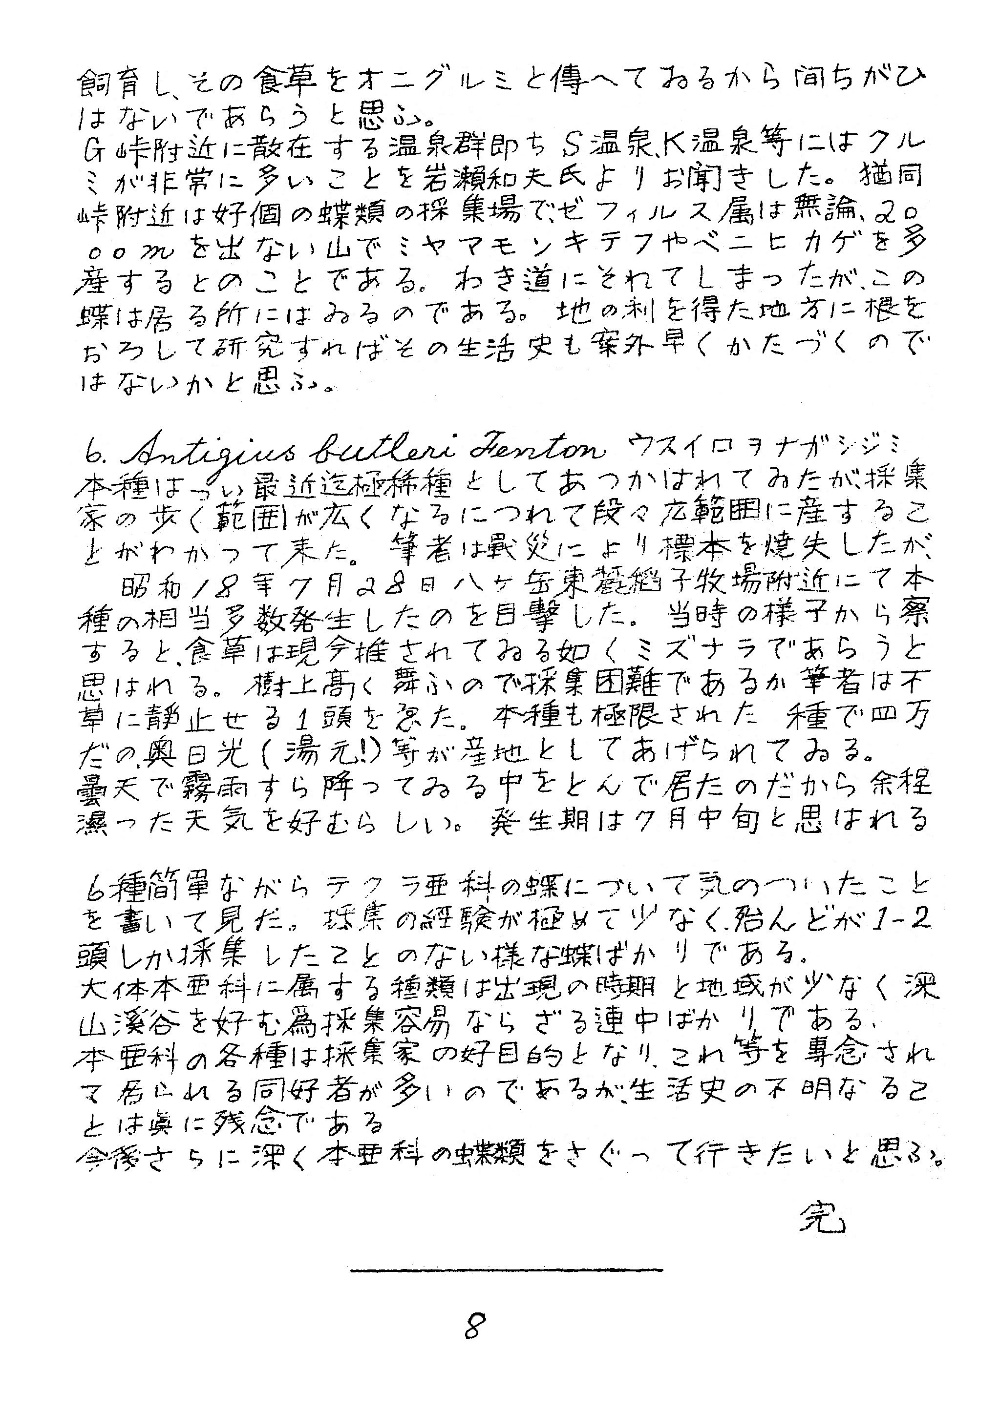 飼育し、その食草をオニグルミと傳へてゐるから间ちがひ
はないであらうと思ふ。
G峠附近に散在する温泉群即ちS温泉、K温泉等にはクル
ミが非常に多いことを岩瀬和夫氏よりお聞きした。猶同
峠附近は好個の蝶類の採集場で、ゼフィルス属は無論、20
00mを出ない山でミヤマモンキテフやベニヒカゲを多
産するとのことである。わき道にそれてしまったが、この
蝶は居る所にはゐるのである。地の利を得た地方に根を
おろして研究すればその生活史も案外早くかたづくので
はないかと思ふ。
6. Antigius butleri Fenton ウスイロヲナガシジミ
本種はつい最近迄極稀種としてあつかはれてゐたが、採集
家の歩く範囲が広くなるにつれて段々広範囲に産するこ
とがわかって来た。筆者は戰災により標本を焼失したが、
昭和18年7月28日八ヶ岳東麓稲子牧場附近にて本
種の相当多数発生したのを目撃した。当時の様子から察
すると、食草は現今推されてゐる如くミズナラであらうと
思はれる。樹上高く舞ふので採集困難であるが筆者は下
草に靜止せる1頭を忍た。本種も極限された 種で四万
だの、奥日光(湯元!)等が産地としてあげられてゐる。
曇天で霧雨すら降ってゐる中をとんで居たのだから余程
濕った天気を好むらしい。発生期は7月中旬と思はれる
6種简單ながらテクラ亜科の蝶について気のついたこと
を書いて見た。採集の経験が極めて少なく、殆んどが1-2
頭しか採集したことのない様な蝶ばかりである。
大体本亜科に属する種類は出現の時期と地域が少なく深
山溪谷を好む為採集容易ならざる連中ばかりである。
本亜科の各種は採集家の好目的となり、これ等を専念され
て居られる同好者が多いのであるが、生活史の不明なるこ
とは眞に残念である
今後さらに深く本亜科の蝶類をさぐって行きたいと思ふ。
完
8